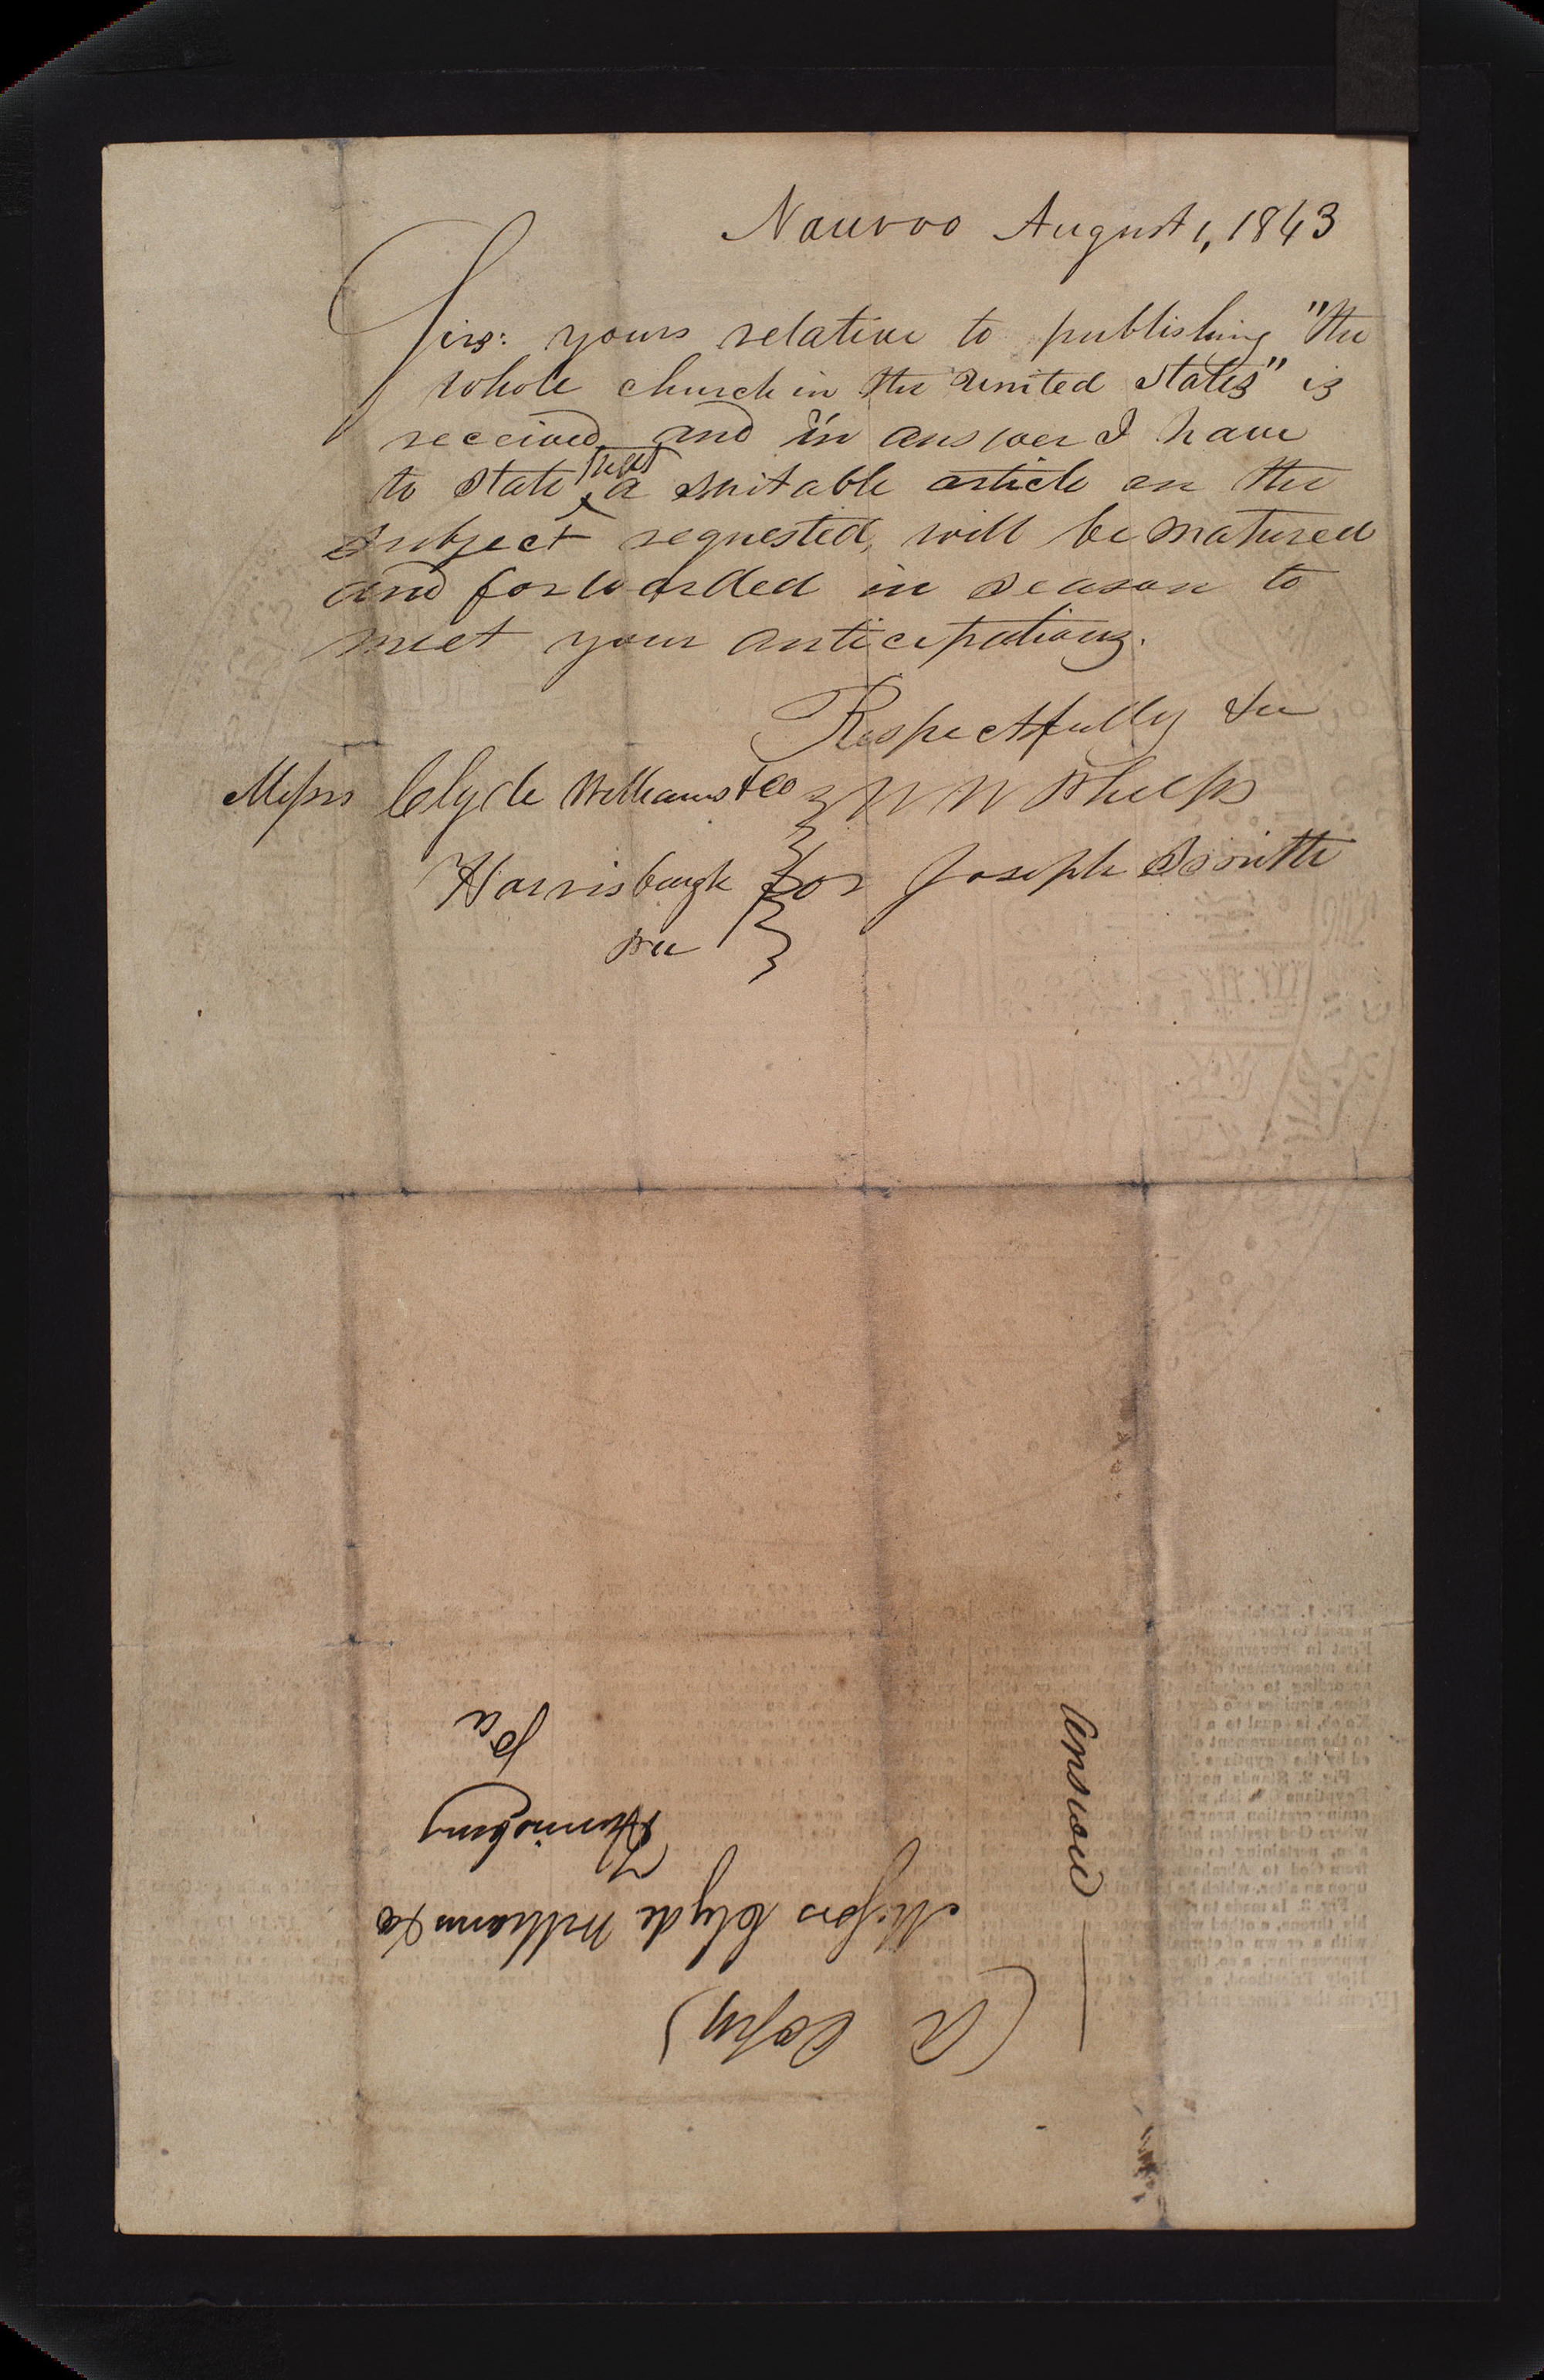 Nauvoo August 1, 1843
Sirs: yours relative to publishing "the
whole church in the United States" is
received, and in answer I have
to state that a suitable article on the
subject requested, will be matured
and forwarded in season to
meet your anticipations.
Respectfully &c
Messrs Clyde Williams & co W W Phelps
Harrisburgh for Joseph Smith
Pa
Answer
(A Copy)
Messrs Clyde Williams & co
Harrisburg
Pa